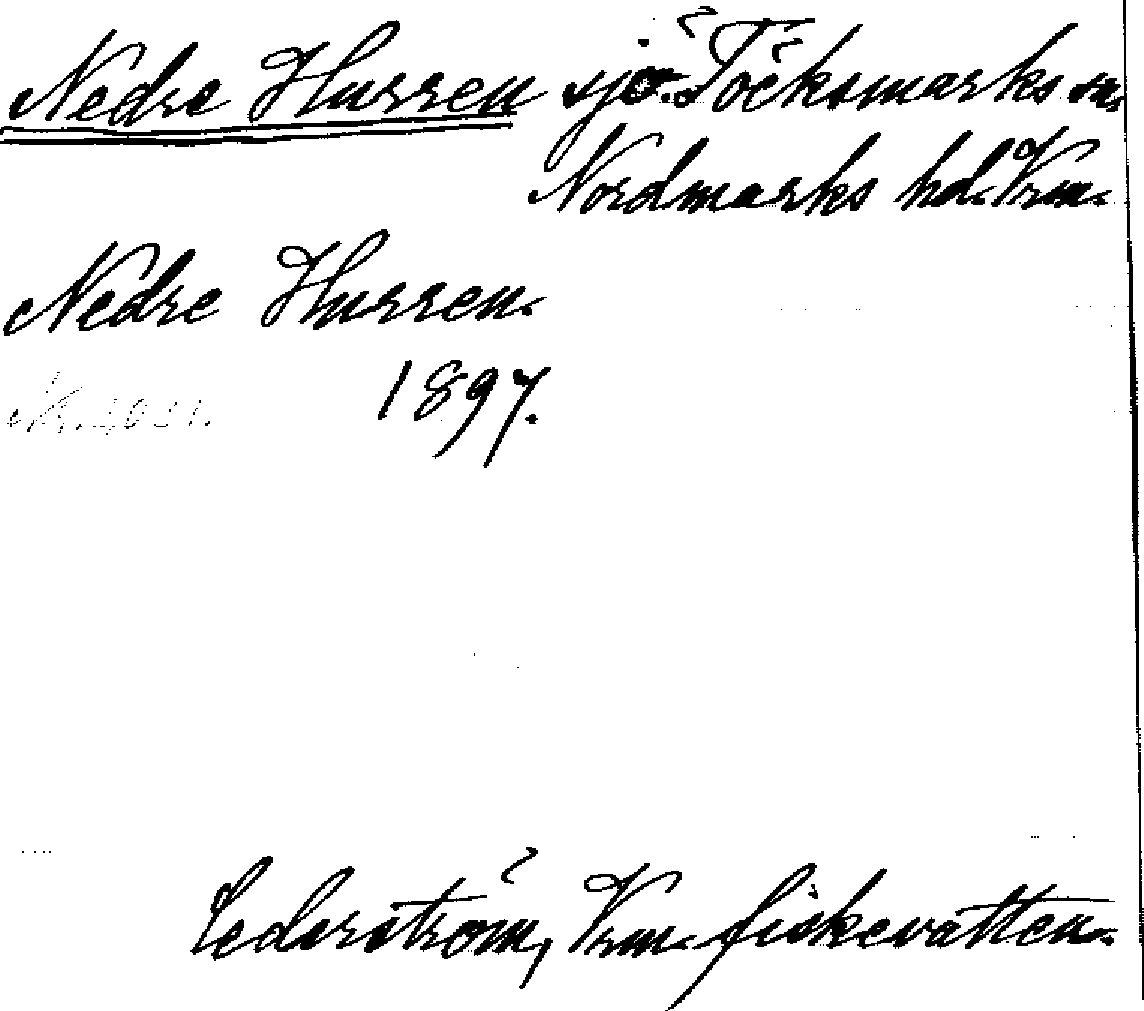 Nedre Hurren sjö. Töcksmarks sn,
Nordmarks hd. Vrm.
Nedre Hurren.
1897.
Cederström, Vrm. fiskevatten.